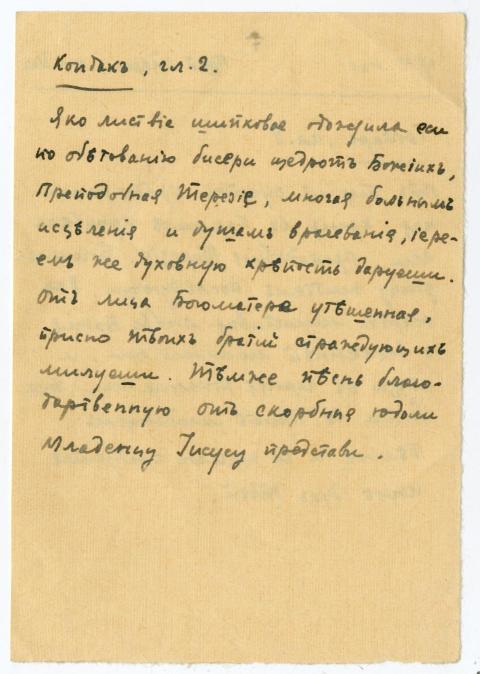 Кондакъ, гл. 2.
Яко листвіе шипковое одождила еси
по обѣтованію бисери щедротъ Божіихъ,
Преподобная Терезіе, многая больнымъ
исцѣленія и душамъ врачеванія, іере-
емъ же духовную крѣпость даруеши.
Отъ лица Богоматере утѣшенная,
присно твоихъ братій страждующихъ
милуеши. Тѣмже пѣснь благо-
дарственную отъ скорбныя юдоли
Младенцу Іисусу представи.